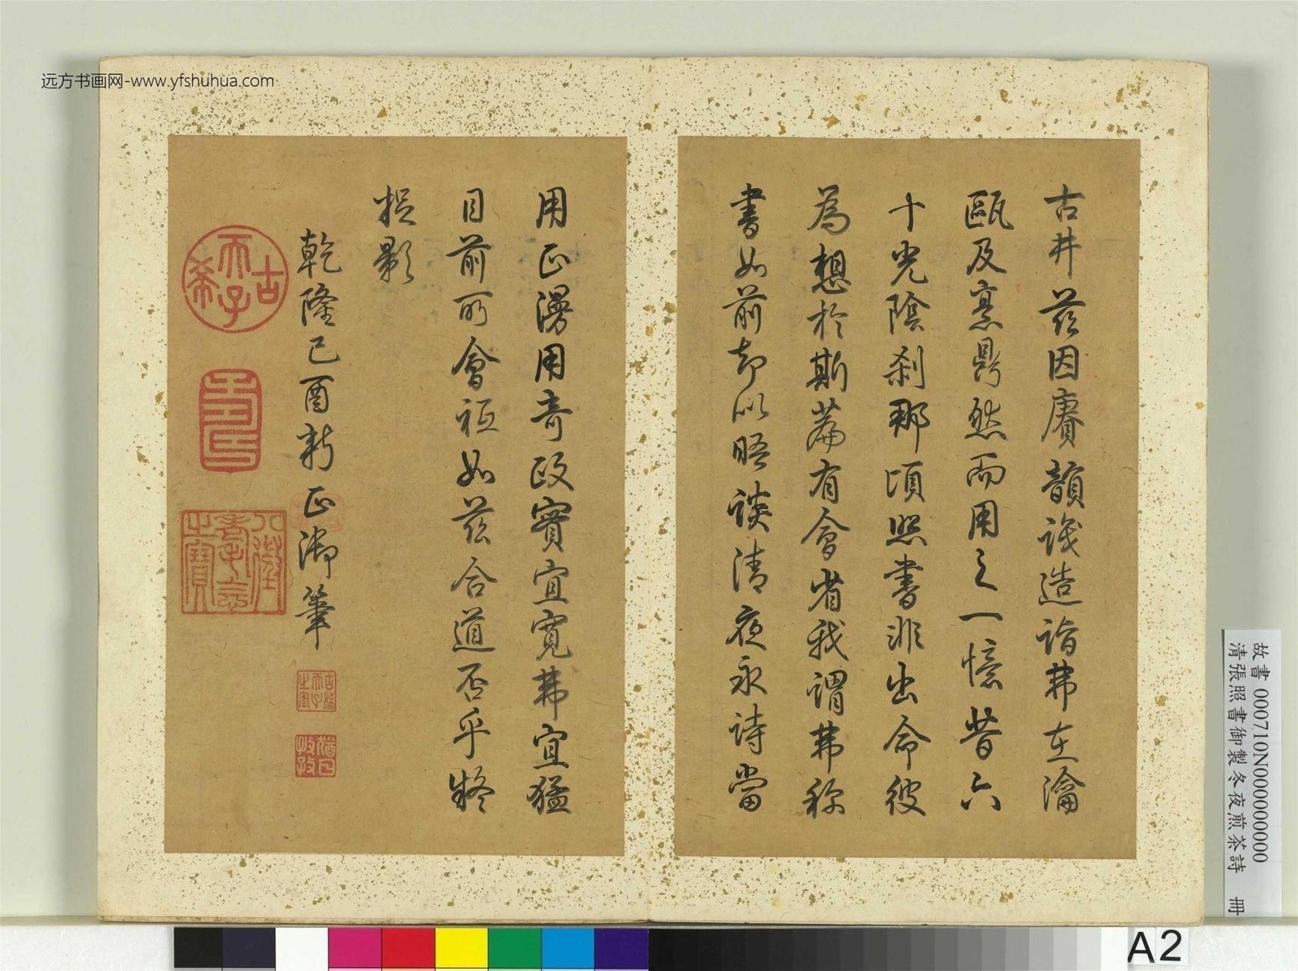 远方书画网-www.yfshuhua.com
古井茲因賡韻識造詣弗在瀹
甌及烹鼎然而用之一憶昔六
十光陰刹那頃照書非出命彼
為想於斯薦有會省我謂弗稱
書如前却以晤談清夜永詩當
用正漫用奇政實宜寬弗宜猛
目前所會祗如茲合道否乎將
捉影
乾隆己酉新正御筆
古稀天子
壽
八徵耄念之寶
古稀天子之寶
猶日孜孜
故書 000710N000000000
清張照書御製冬夜煎茶詩 冊
A2